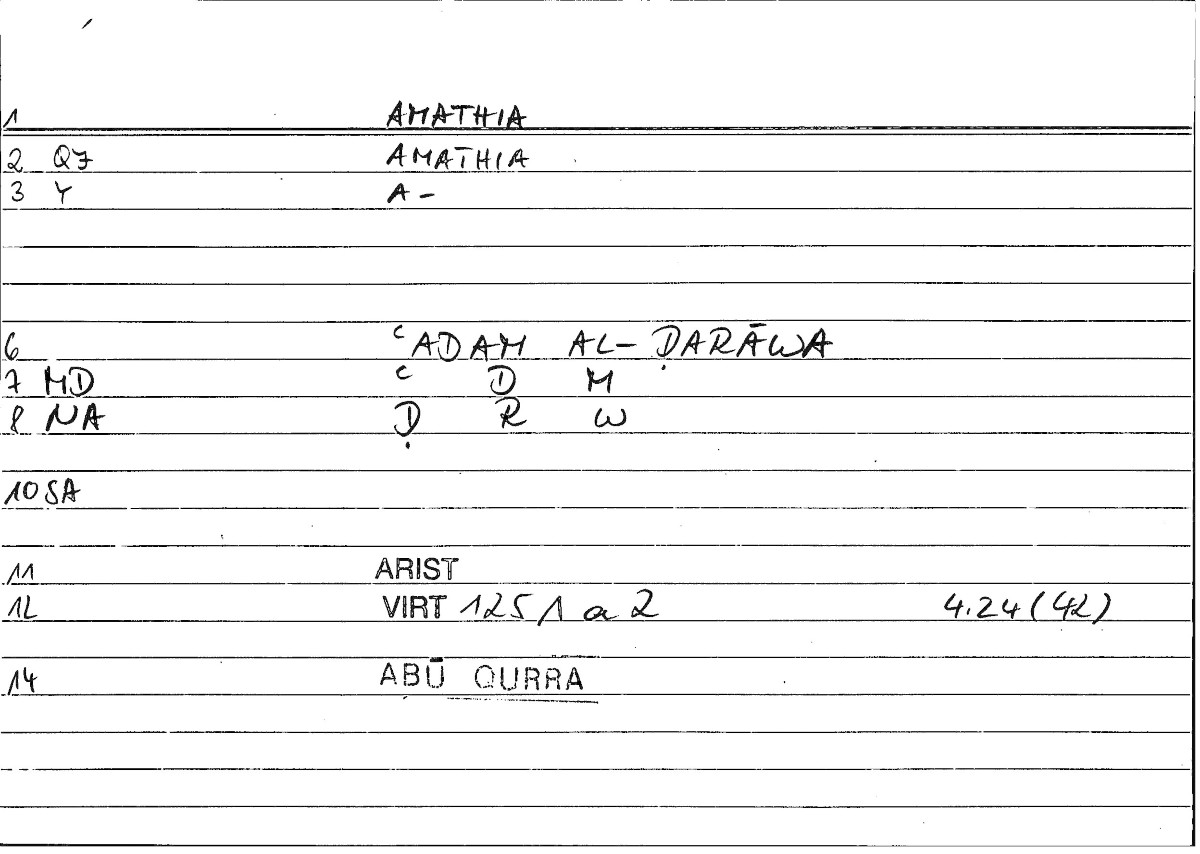 1 AMATHIA
2 Q7 AMATHIA
3 Y A-
6 ʿADAM AL-ḌARĀWA
7 MD ʿ D M
8 NA Ḍ R W
10 SA
11 ARIST
12 VIRT 1251 a 2 4.24(42)
14 ABŪ QURRA